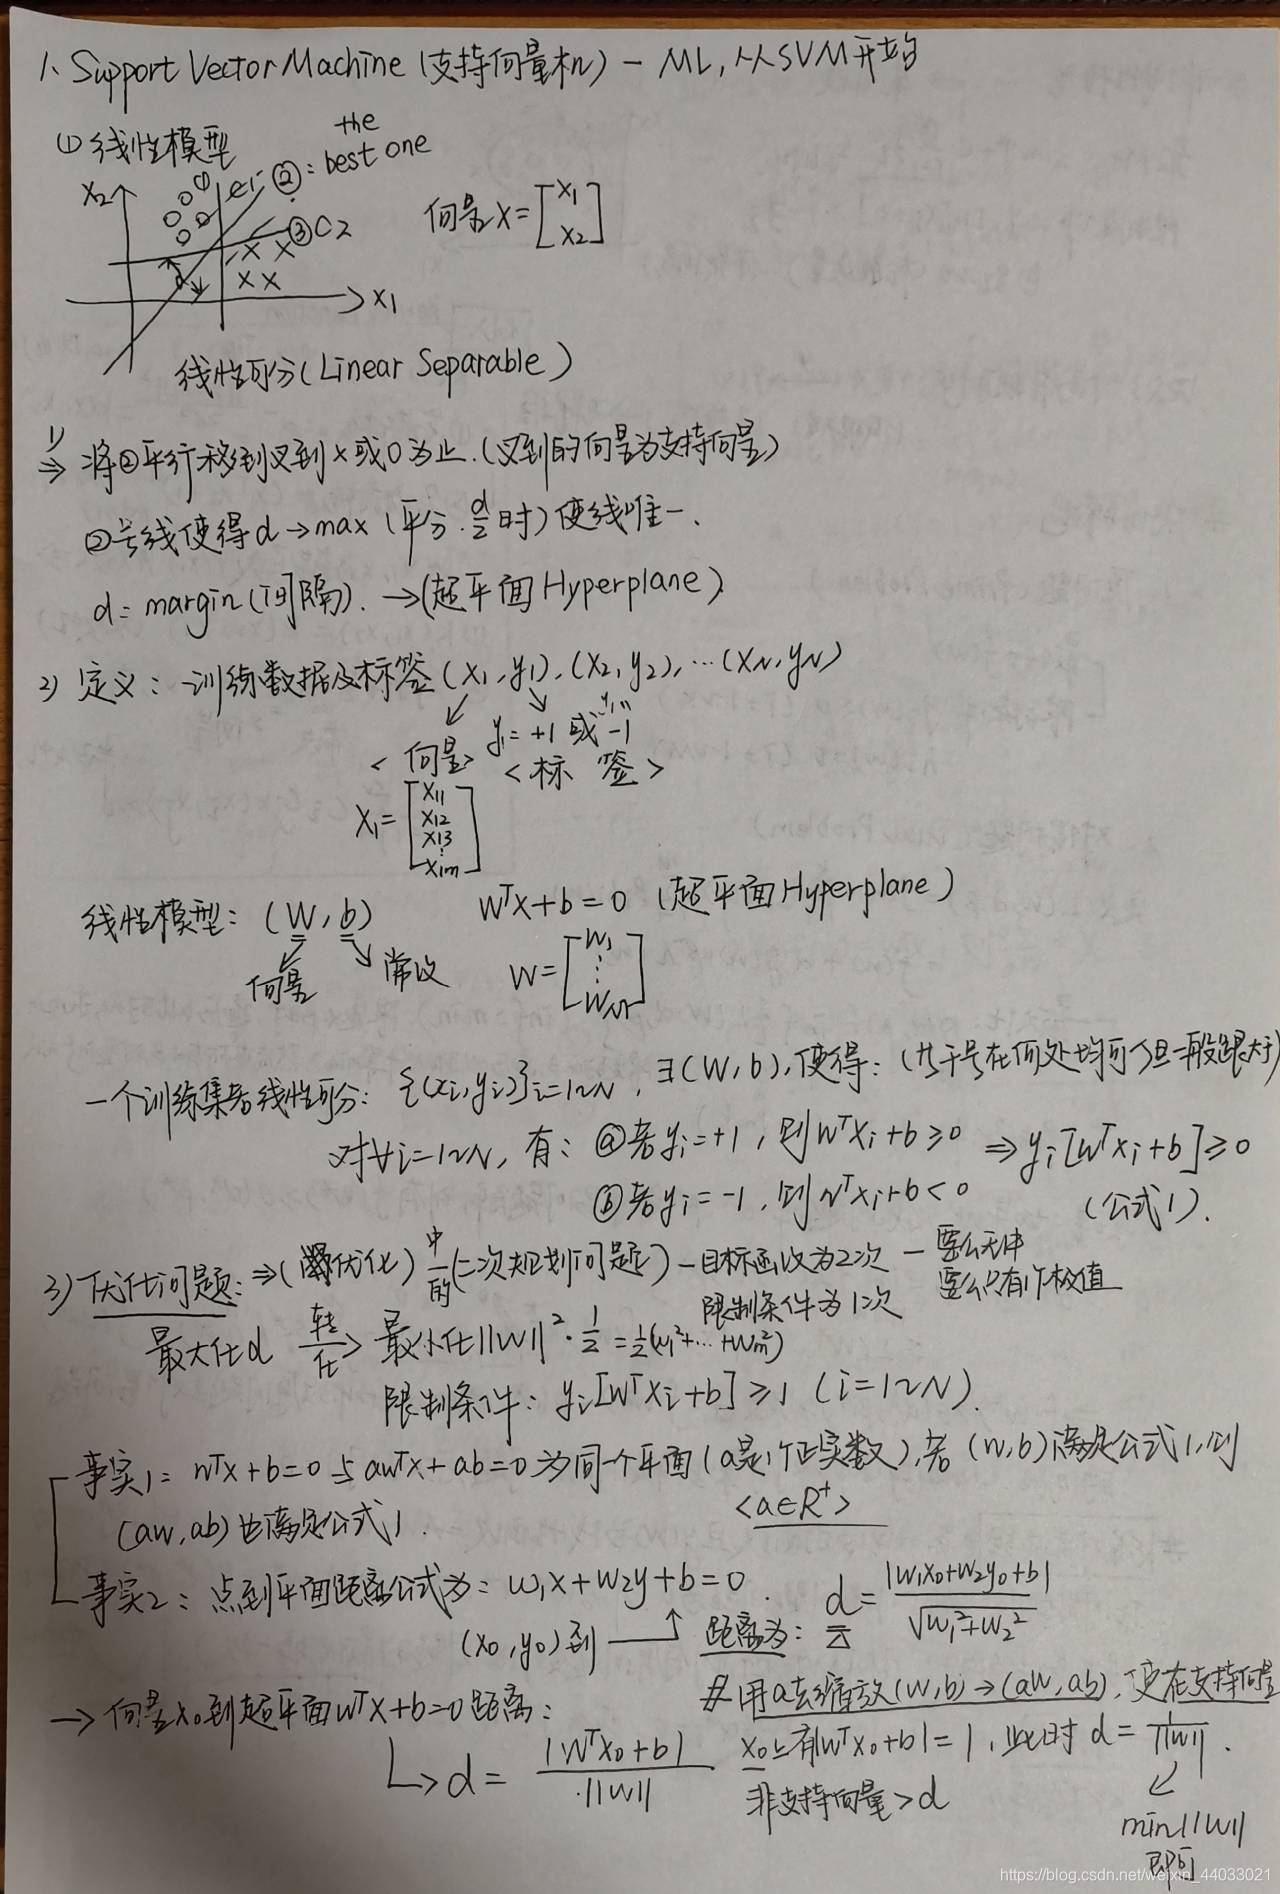 1、Support Vector Machine (支持向量机) - ML,从SVM开始
① 线性模型
the
②: best one
X2
①
C1
③C2
d
X1
向量X=[X1 X2]
线性可分(Linear Separable)
1)⇒ 将②平行移到叉到x或O为止.(叉到的向量为支持向量)
②号线使得d→max (平分.d/2时)使线唯一.
d=margin(间隔). →(超平面Hyperplane)
2) 定义:训练数据及标签(X1,y1),(X2,y2),…(XN,yN)
<向量> y1=+1 或 -1
<标 签>
X1=[X11 X12 X13 ⋮ X1m]
线性模型:(W,b) W^TX+b=0 (超平面Hyperplane)
向量 常数 W=[W1 ⋮ WM]
一个训练集若线性可分:{(xi,yi)}i=1~N,∃(W,b),使得:(等于号在何处均可,但一般跟大于)
对∀i=1~N,有:ⓐ若yi=+1,则W^TXi+b≥0 ⇒yi[W^TXi+b]≥0
ⓑ若yi=-1,则W^TXi+b<0 (公式1).
3)优化问题:⇒(凸优化)中的(二次规划问题)-目标函数为2次 - 要么无解
限制条件为1次 要么只有1个极值
最大化d 转化> 最小化||W||²·1/2=1/2(W1²+…+Wm²)
限制条件:yi[W^TXi+b]≥1 (i=1~N).
事实1: W^TX+b=0与aW^TX+ab=0为同一个平面(a是1个正实数),若(W,b)满足公式1,则
(aw,ab)也满足公式1. <a∈R⁺>
事实2:点到平面距离公式为:W1X+W2y+b=0.
(X0,y0)到 距离为:d=|W1X0+W2y0+b|/√(W1²+W2²)
→ 向量X0到超平面W^TX+b=0距离: #用a去缩放(W,b)→(aW,ab),使在支持向量
d=|W^TX0+b|/||W|| X0上有|W^TX0+b|=1,此时 d=1/||W||.
非支持向量>d
min||W||
即可
https://blog.csdn.net/weixin_44033021